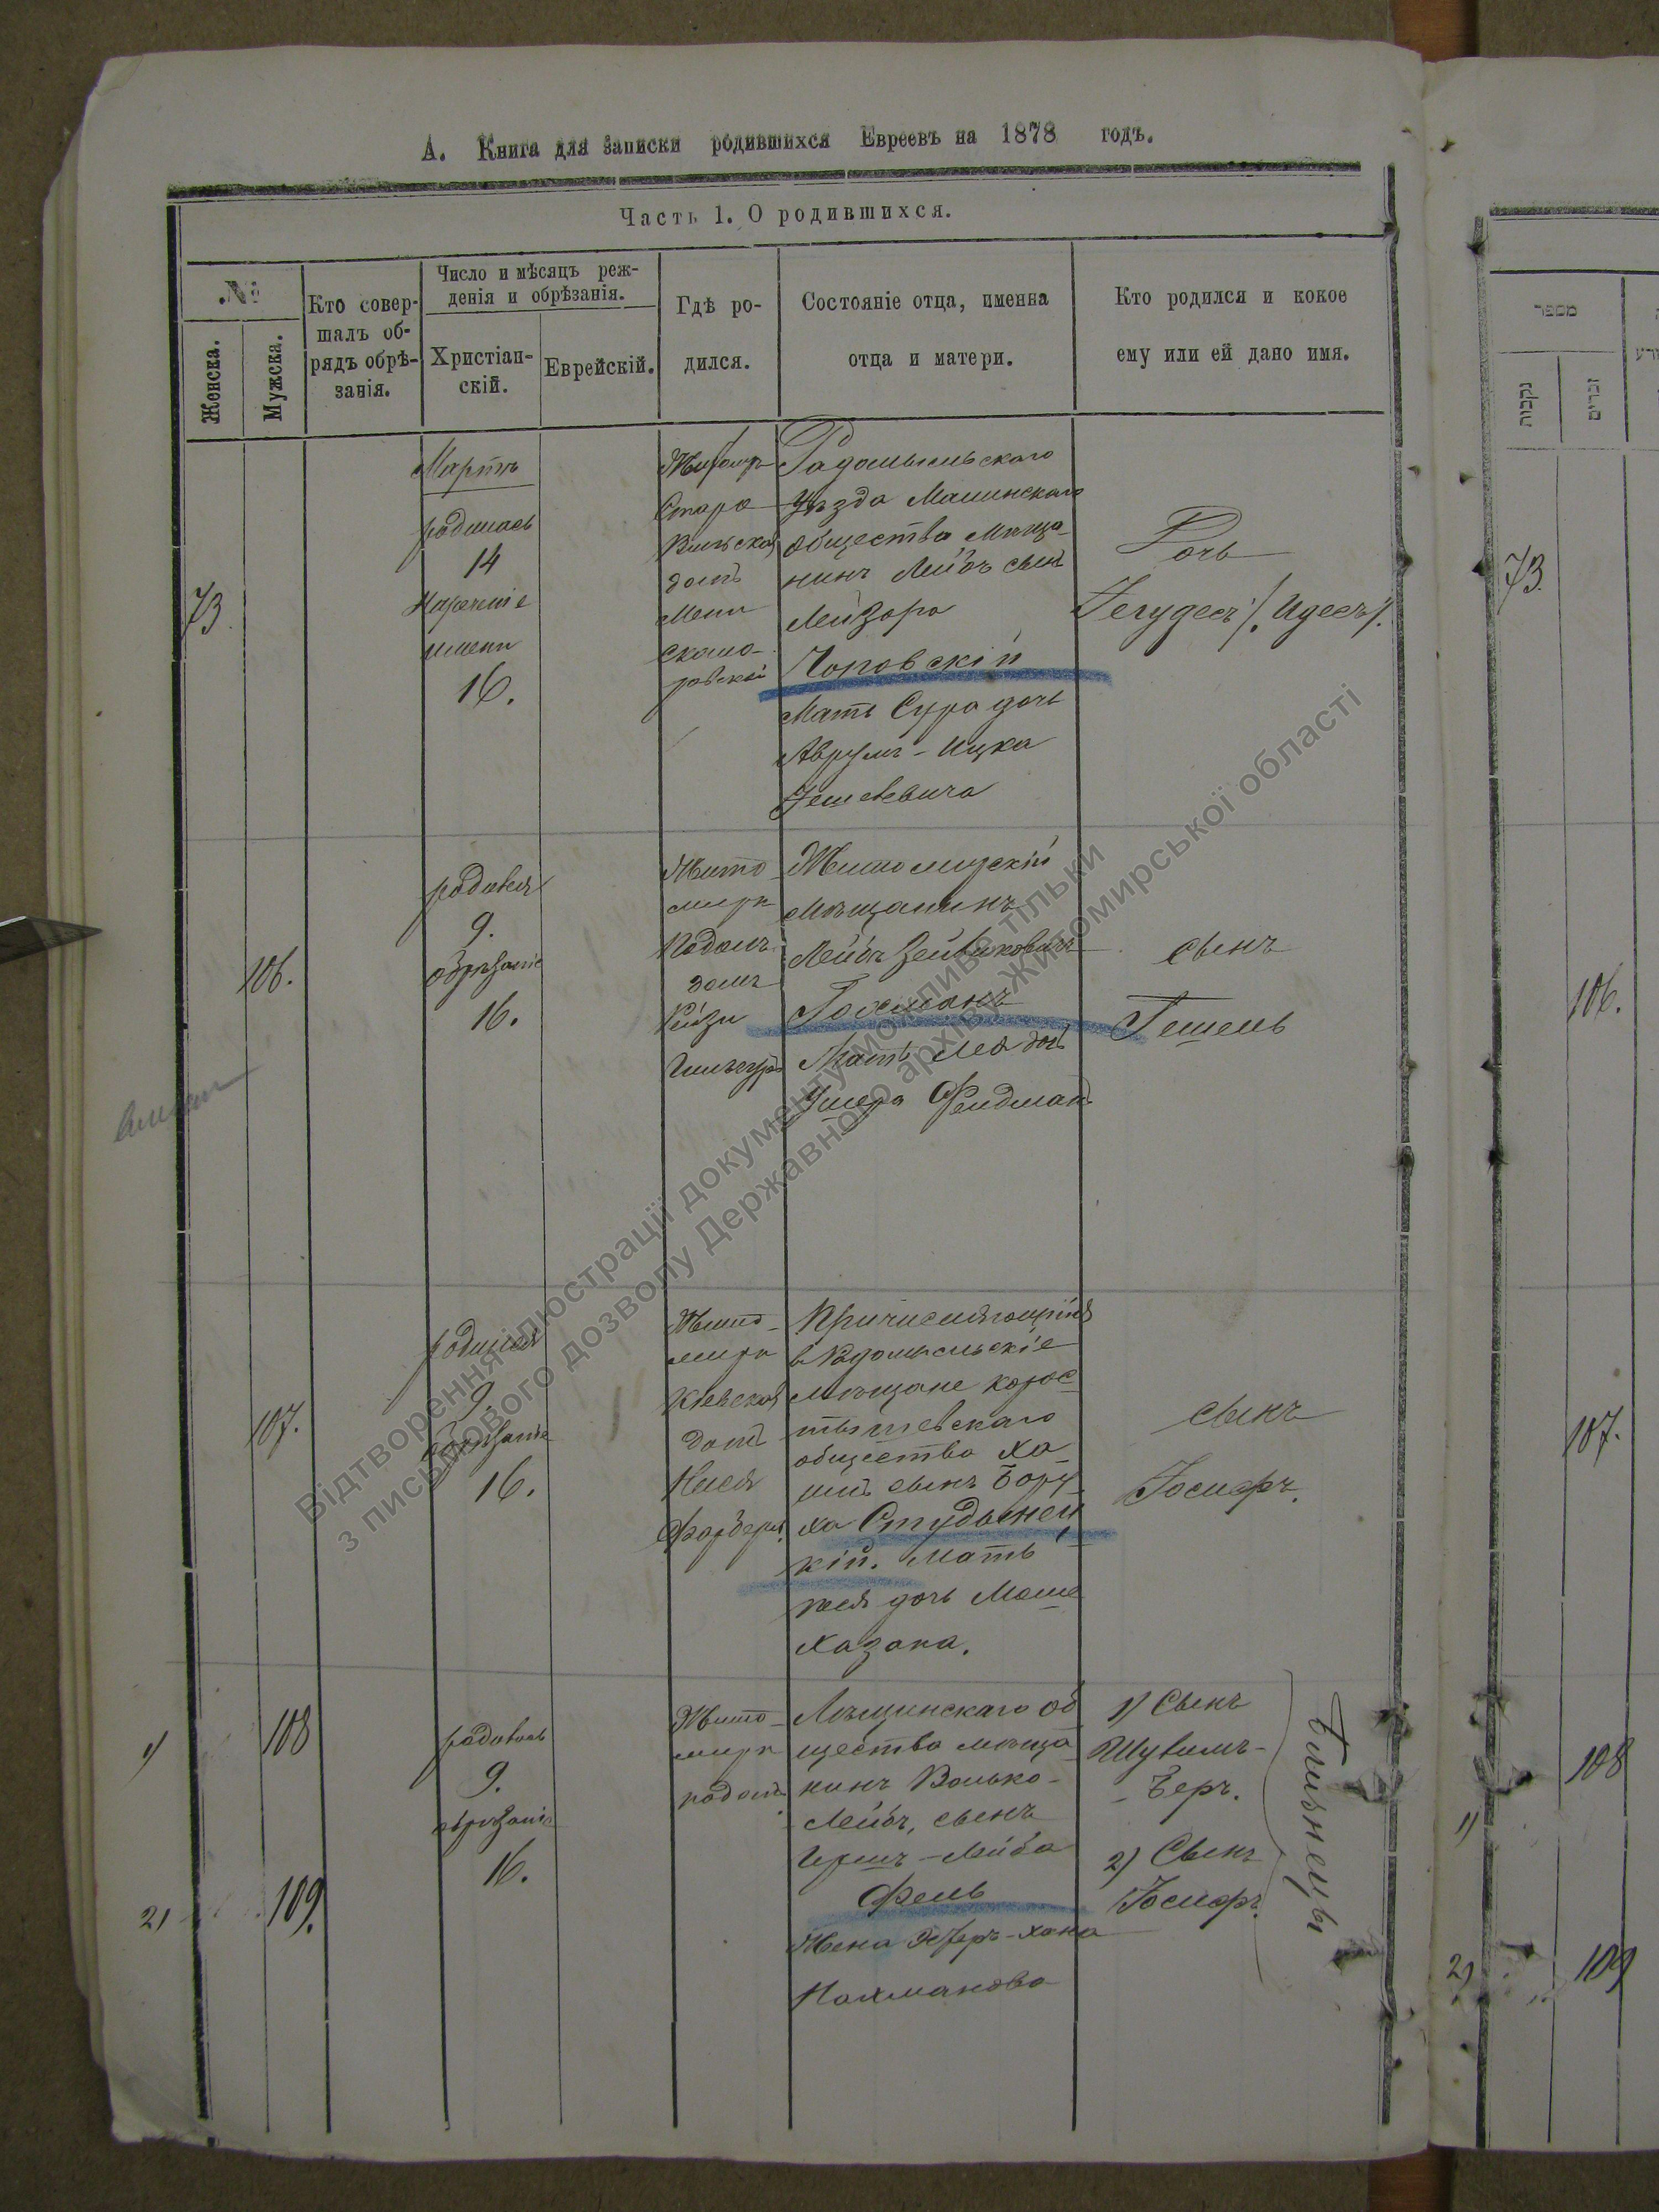 А. Книга для записки родившихся Евреевъ на 1878 годъ.
Часть 1. О родившихся.
№
Женска.
Мужска.
Кто совер-
шалъ об-
рядъ обрѣ-
занія.
Число и мѣсяцъ реж-
денія и обрѣзанія.
Христіан-
скій.
Еврейскій.
Гдѣ ро-
дился.
Состояніе отца, именна
отца и матери.
Кто родился и кокое
ему или ей дано имя.
מספר
נקבות
זכרים
73
Мартъ
родилась
14
Нареченіе
имени
16.
Житомиръ
Старо
Вильской
домъ
Радомысльскаго
Уѣзда Малинскаго
общества Мѣща-
нинъ Лейбъ сынъ
Лейзора
Чоповскій
Мать Сура дочь
Аврумъ-Ицка
Дочь
Іегудесъ /. Идесъ /.
73.
106.
родився
9.
обрѣзаніе
16.
Жито-
миръ
Подолъ
домъ
Житомирскій
мѣщанинъ
Лейбъ
Гохманъ
Мать Лея дочь
Ушера Фелдмана
сынъ
Гешель
106.
107.
родился
9.
обрѣзаніе
16.
Жито-
миръ
Кіевской
домъ
Фарбера.
Причисляющійся
в Радомысльскіе
мѣщане корос-
тышевскаго
общества Ха-
имъ сынъ Бору-
ха Студынец-
кій. Мать
дочь Моше
Хазана.
сынъ
Іосифъ.
107.
1)
108
2)
109.
родивсь
9.
обрѣзаніе
16.
Жито-
миръ
подолъ
об
щества мѣща
нинъ Волько-
Лейбъ, сынъ
Гершъ-Лейба
Фель
Жена Эстеръ-Хана
Нахманова
1) Сынъ
Шувимъ-
-Беръ.
2) Сынъ
Іосифъ.
Близнецы
108
1)
2)
109
Відтворення ілюстрації документу можливе тільки
з письмового дозволу Державного архіву Житомирської області